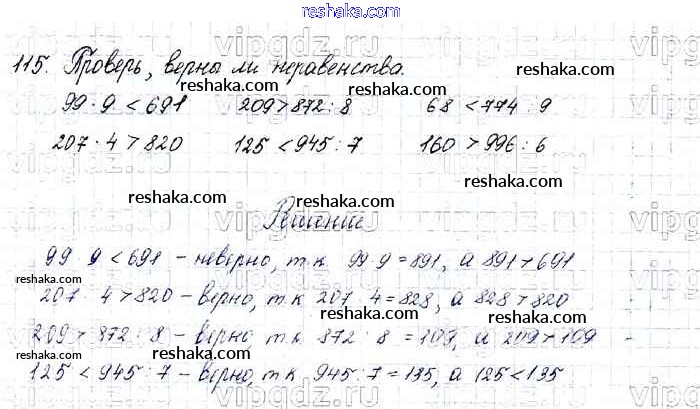 reshaka.com
115. Проверь, верны ли неравенства.
99 · 9 < 691 209 > 872 : 8 68 < 774 : 9
207 · 4 > 820 125 < 945 : 7 160 > 996 : 6
Решение
99 9 < 691 - неверно, т к 99 9 = 891, а 891 > 691
207 · 4 > 820 - верно, т к 207 · 4 = 828, а 828 > 820
209 > 872 : 8 - верно т к 872 : 8 = 109, а 209 > 109
125 < 945 : 7 - верно, т к 945 : 7 = 135, а 125 < 135
reshaka.com
reshaka.com
reshaka.com
reshaka.com
reshaka.com
reshaka.com
reshaka.com
reshaka.com
reshaka.com
vipgdz.ru
vipgdz.ru
vipgdz.ru